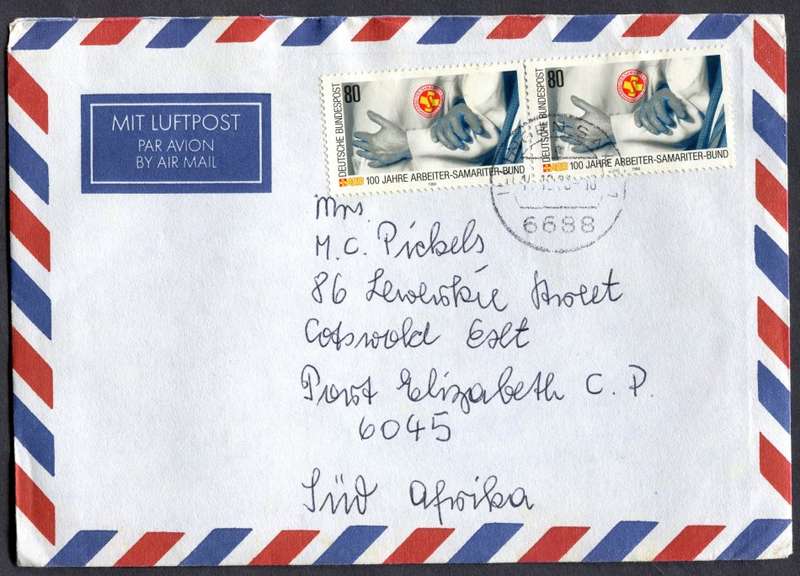 MIT LUFTPOST
PAR AVION
BY AIR MAIL
80
DEUTSCHE BUNDESPOST
100 JAHRE ARBEITER-SAMARITER-BUND
80
DEUTSCHE BUNDESPOST
100 JAHRE ARBEITER-SAMARITER-BUND
6688
Mrs.
M.C. Pickels
86 Street
Cotswold Ext
Port Elizabeth C.P.
6045
Süd Afrika